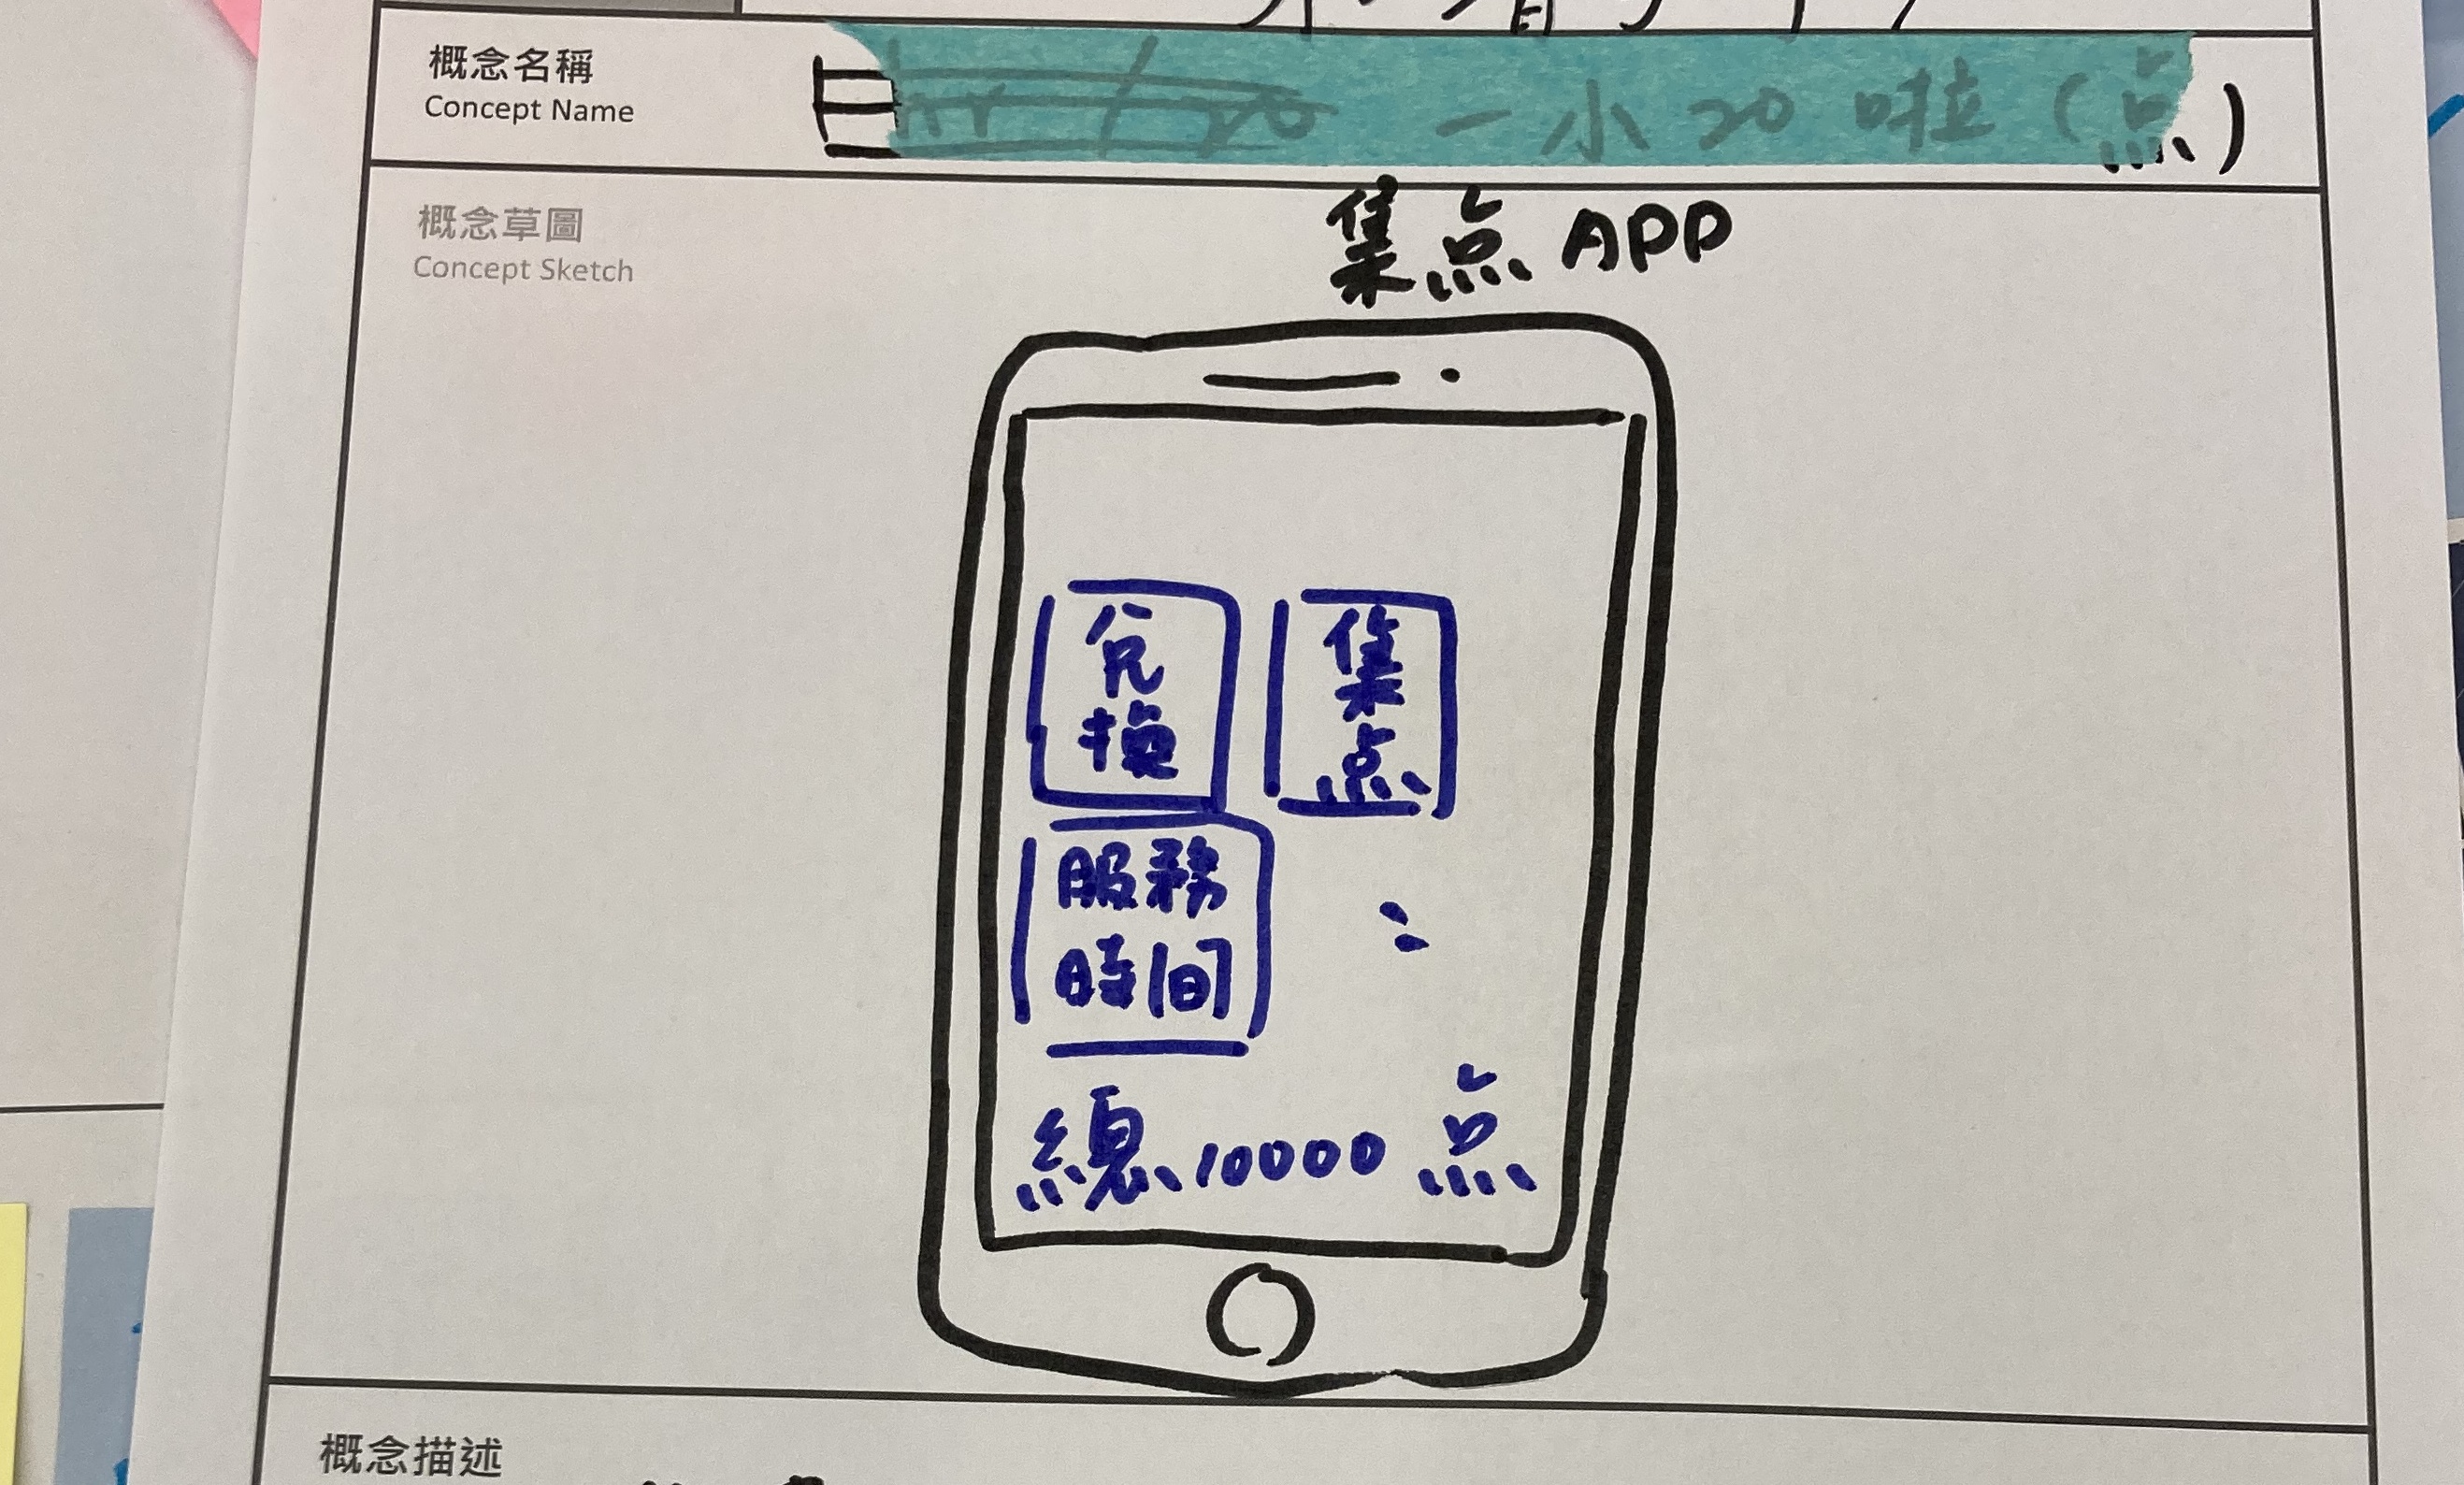 概念名稱
Concept Name
一小20啦(点)
概念草圖
Concept Sketch
集点APP
兌換
集点
服務
時间
總10000点
概念描述